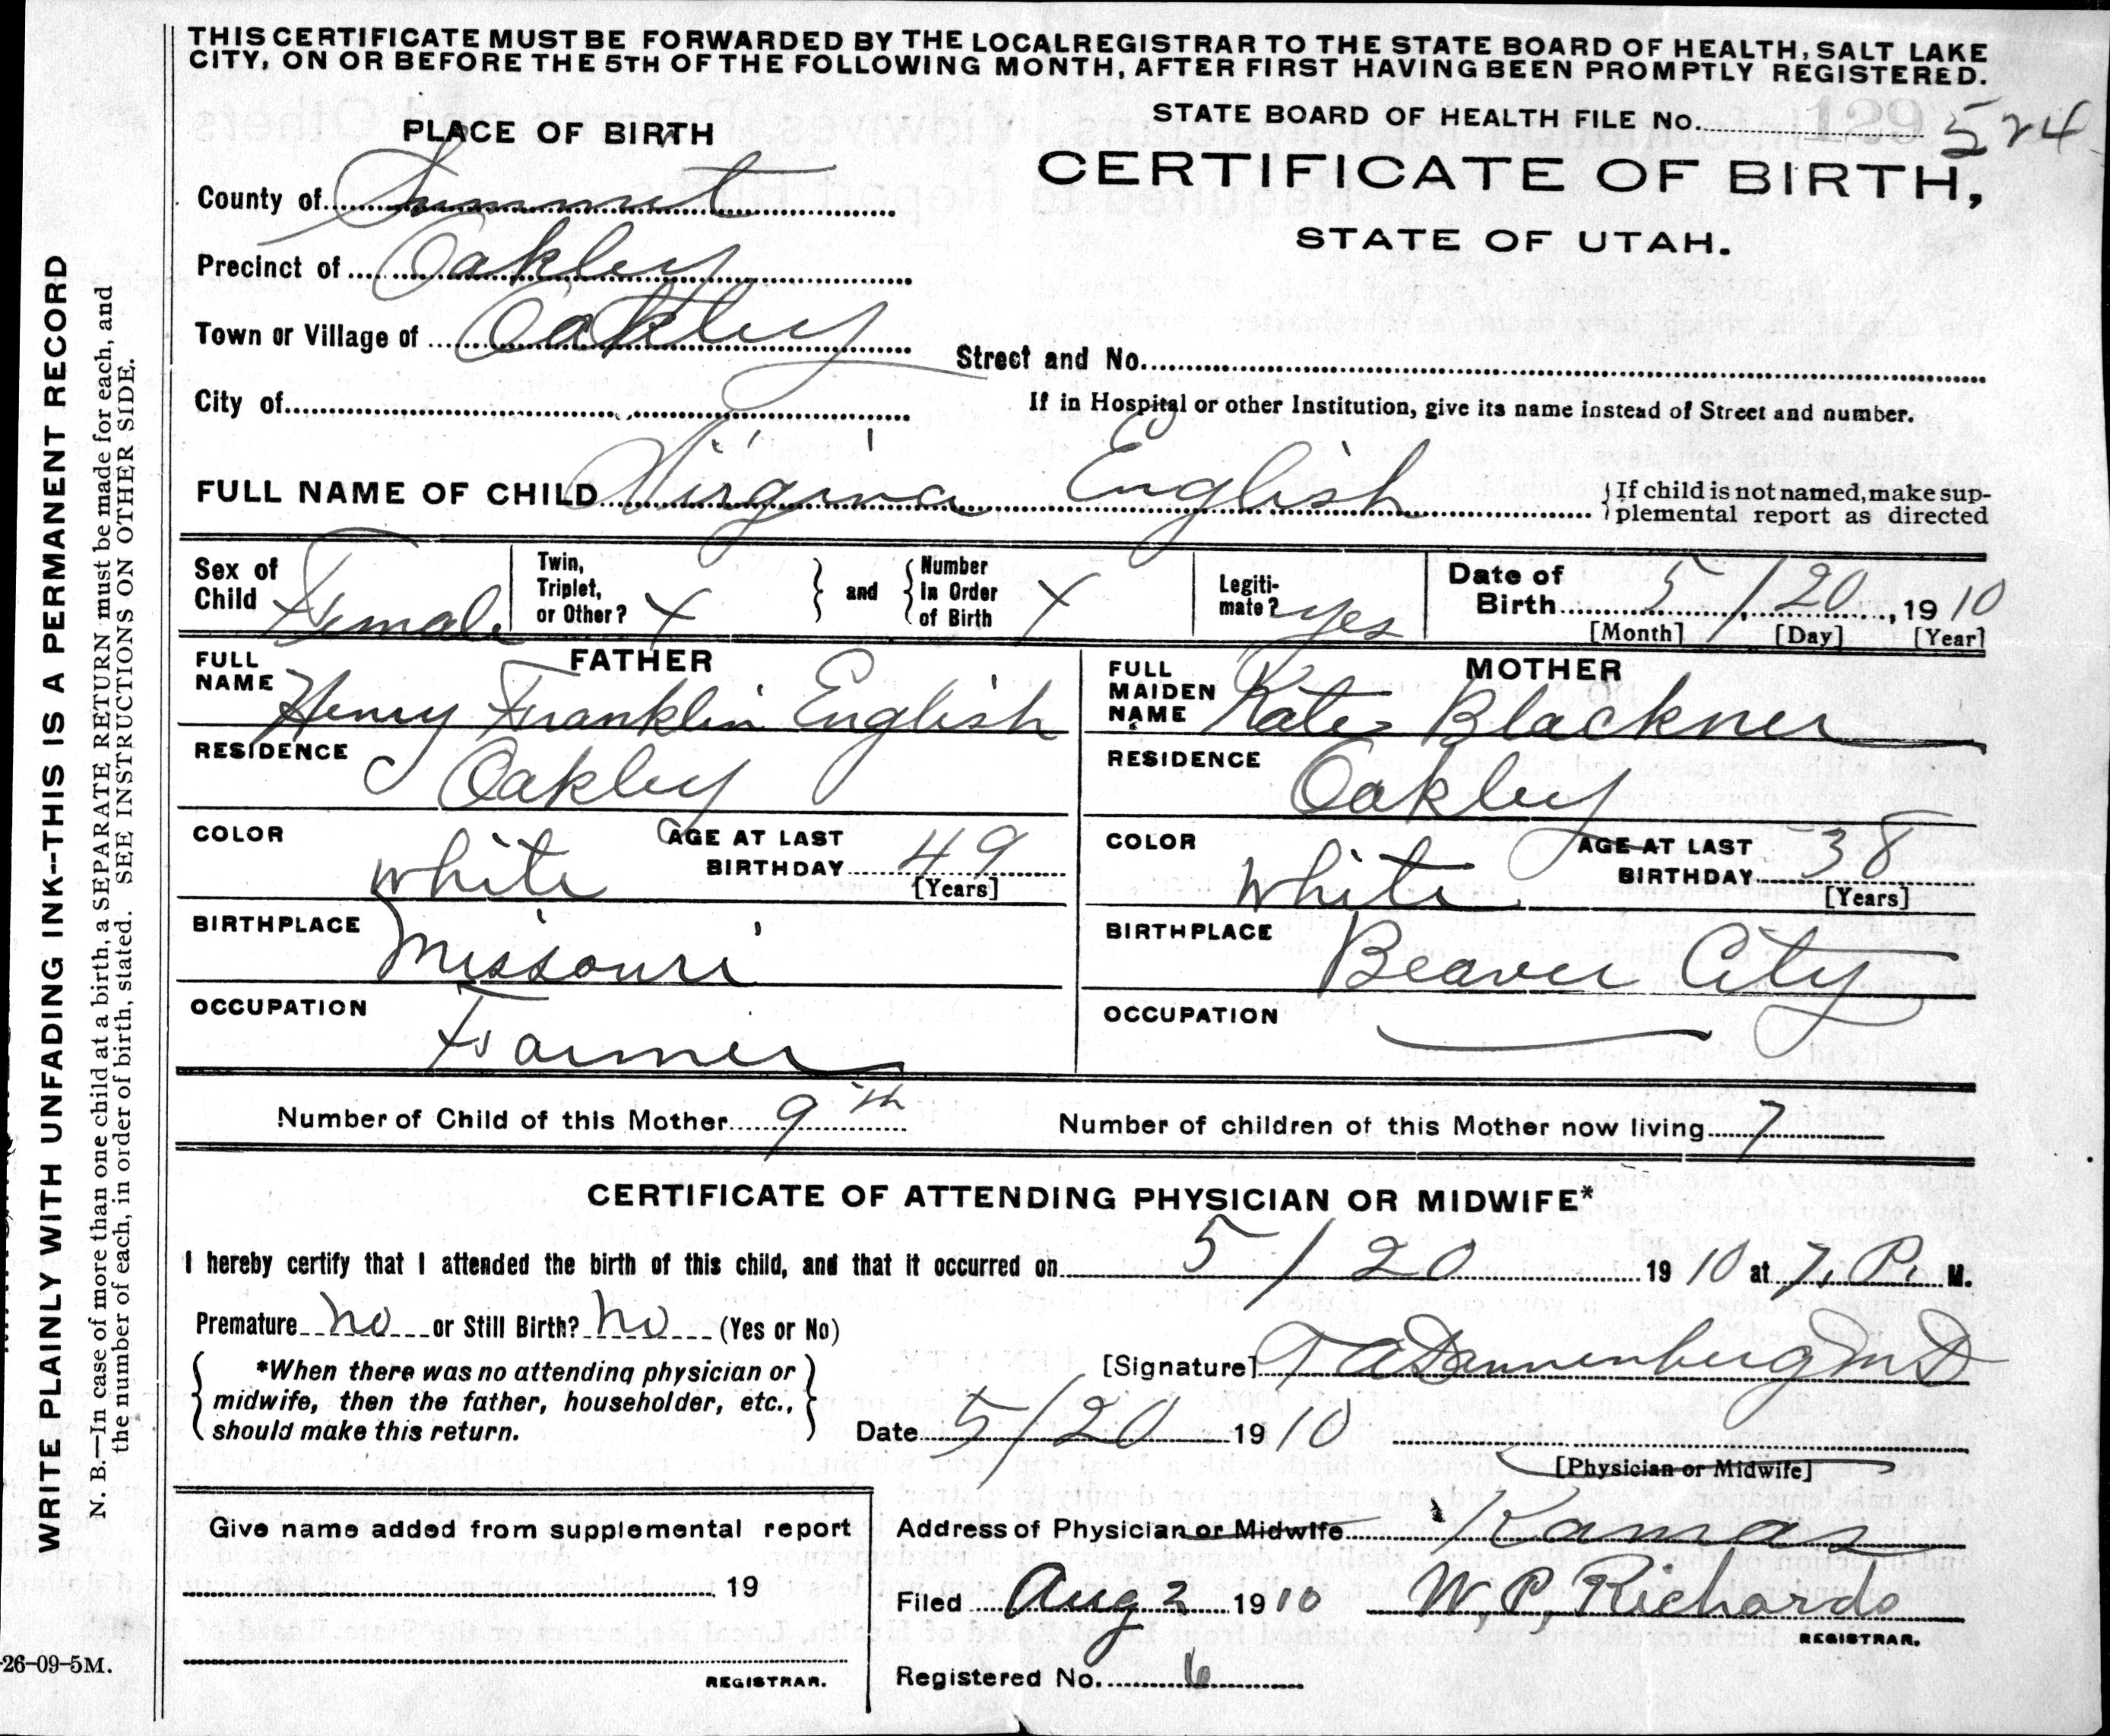 THIS CERTIFICATE MUST BE FORWARDED BY THE LOCAL REGISTRAR TO THE STATE BOARD OF HEALTH, SALT LAKE
CITY, ON OR BEFORE THE 5TH OF THE FOLLOWING MONTH, AFTER FIRST HAVING BEEN PROMPTLY REGISTERED.
STATE BOARD OF HEALTH FILE No. 129 524
CERTIFICATE OF BIRTH,
STATE OF UTAH.
PLACE OF BIRTH
County of Summit
Precinct of Oakley
Town or Village of Oakley
Street and No.
City of
If in Hospital or other Institution, give its name instead of Street and number.
FULL NAME OF CHILD Virginia English
If child is not named, make sup-
plemental report as directed
Sex of Child Female
Twin, Triplet, or Other? X
and
Number In Order of Birth X
Legiti-mate? yes
Date of Birth 5 / 20, 1910
[Month] [Day] [Year]
FATHER
FULL NAME Henry Franklin English
RESIDENCE Oakley
COLOR white
AGE AT LAST BIRTHDAY 49
[Years]
BIRTHPLACE Missouri
OCCUPATION Farmer
MOTHER
FULL MAIDEN NAME Kate Blackner
RESIDENCE Oakley
COLOR white
AGE AT LAST BIRTHDAY 38
[Years]
BIRTHPLACE Beaver City
OCCUPATION
Number of Child of this Mother 9th
Number of children of this Mother now living 7
CERTIFICATE OF ATTENDING PHYSICIAN OR MIDWIFE*
I hereby certify that I attended the birth of this child, and that it occurred on 5 / 20 1910 at 7, P. M.
Premature no or Still Birth? no (Yes or No)
*When there was no attending physician or
midwife, then the father, householder, etc.,
should make this return.
[Signature] T A Dannenberg M D
Date 5/20 1910
[Physician or Midwife]
Give name added from supplemental report
19
REGISTRAR.
Address of Physician or Midwife Kamas
Filed Aug 2 1910 W. P. Richards
REGISTRAR.
Registered No. 6
WRITE PLAINLY WITH UNFADING INK--THIS IS A PERMANENT RECORD
N. B.—In case of more than one child at a birth, a SEPARATE RETURN must be made for each, and
the number of each, in order of birth, stated. SEE INSTRUCTIONS ON OTHER SIDE.
26-09-5M.